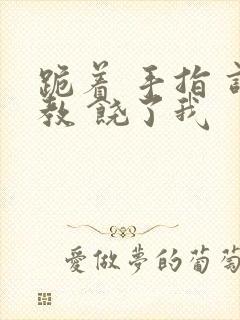 跪着 手指
教 饶了我
愛做夢的葡萄